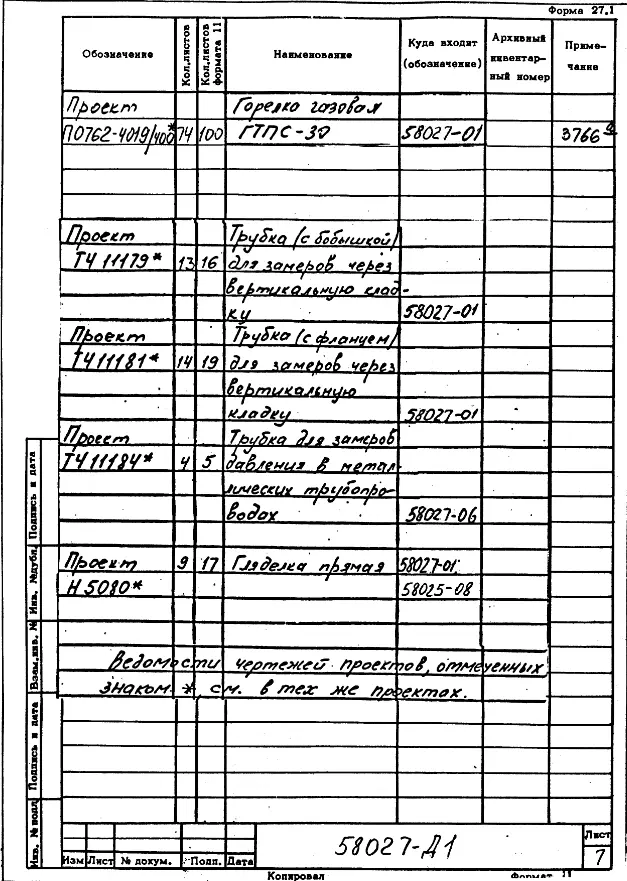 Форма 27.1
Обозначение Кол.листов Кол.листов формата 11 Наименование Куда входит (обозначение) Архивный инвентарный номер Примечание
Проект Горелка газовая
П0762-4019/400* 74 100 ГТПС-30 58027-01 3766
Проект Трубка (с бобышкой)
ТЧ 11179* 13 16 для замеров через
вертикальную клад-
ку 58027-01
Проект Трубка (с фланцем)
ТЧ 11181* 14 19 для замеров через
вертикальную
кладку 58027-01
Проест Трубка для замеров
ТЧ 11184* 4 5 давления в метал-
лических трубопро-
водах 58027-06
Проект 9 17 Гляделка прямая 58027-01;
Н 5080* 58025-08
Ведомости чертежей проектов, отмеченных
знаком *, см. в тех же проектах.
Инв. № подл Подпись и дата Взам.инв. № Инв. №дубл. Подпись и дата
58027-Д1
Лист
7
Изм Лист № докум. Подп. Дата
Копировал Формат 11